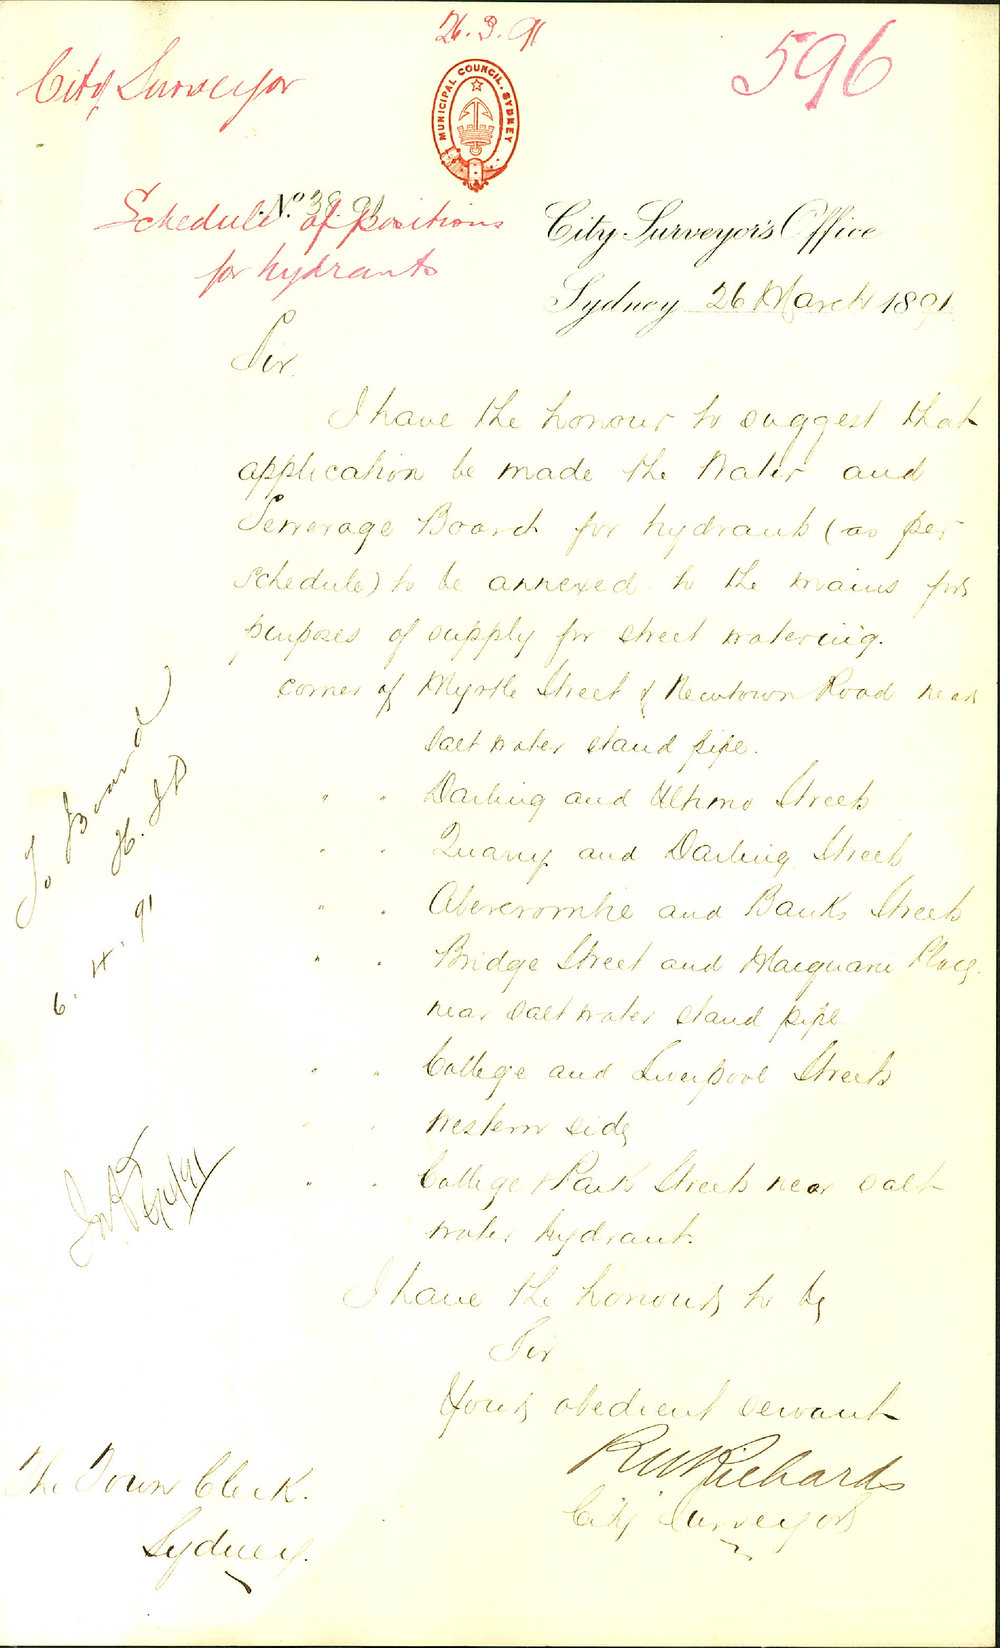 26.3.91
596
City Surveyor
MUNICIPAL COUNCIL. SYDNEY
No. 38.91
Schedule of positions
for hydrants
City Surveyor's Office
Sydney 26 March 1891
Sir.
I have the honour to suggest that
application be made the Water and
Sewerage Board for hydrants (as per
schedule) to be annexed to the mains for
purposes of supply for street watering.
corner of Myrtle Street & Newtown Road near
salt water stand pipe.
" " Darling and Ultimo Streets
" " Quarry and Darling Streets
" " Abercrombie and Banks Streets
" " Bridge Street and Macquarie Place
near salt water stand pipe
" " College and Liverpool Streets
Western side
" " College & Park Streets near salt
water hydrant.
I have the honour to be
Sir
Your obedient servant
RW Richards
City Surveyor
The Town Clerk.
Sydney.
To Board
6.4.91